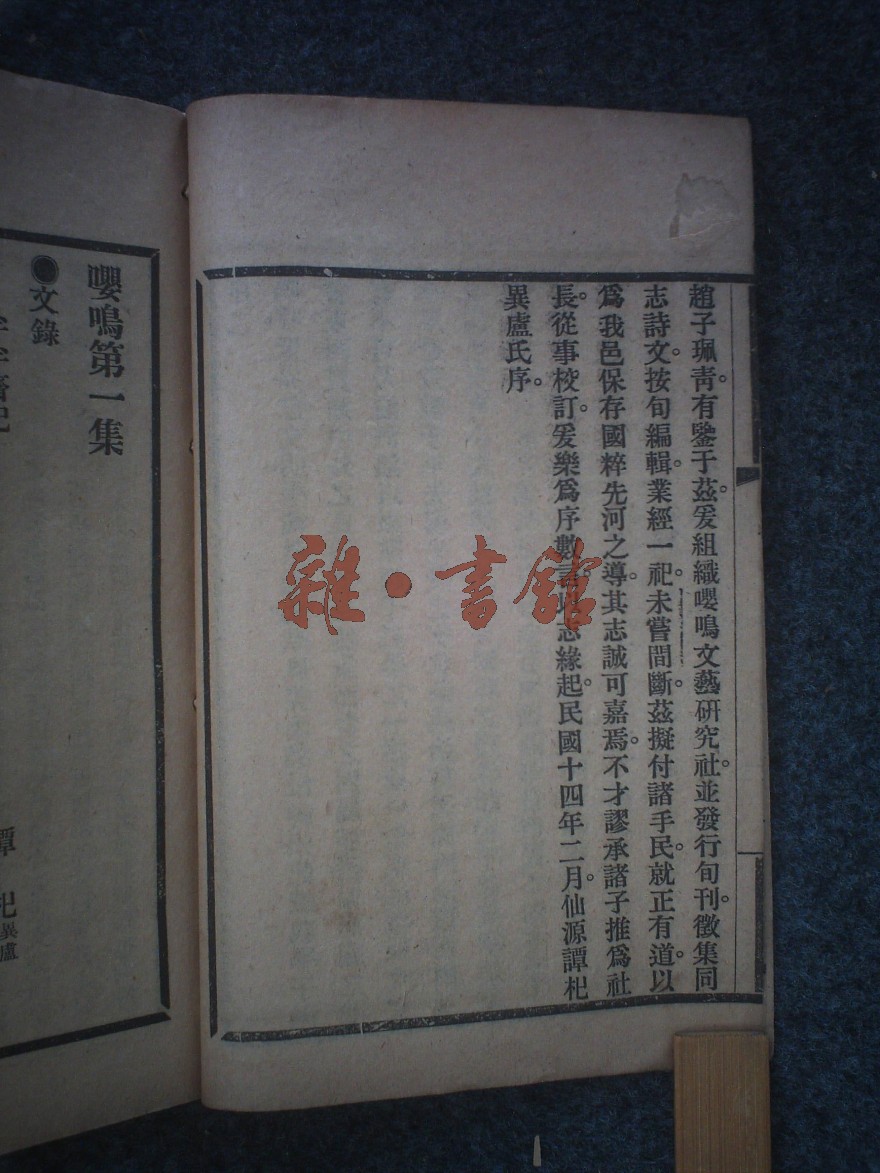 趙子珮靑。有鑒于茲。爰組織嚶鳴文藝研究社。並發行旬刊。徵集同
志詩文。按旬編輯。業經一祀。未嘗間斷。茲擬付諸手民。就正有道。以
爲我邑保存國粹先河之導。其志誠可嘉焉。不才謬承諸子推爲社
長。從事校訂。爰樂爲序數言以志緣起。民國十四年二月。仙源譚杞
異盧氏序。
嚶鳴第一集
◉文錄
譚杞異盧
雜·書館